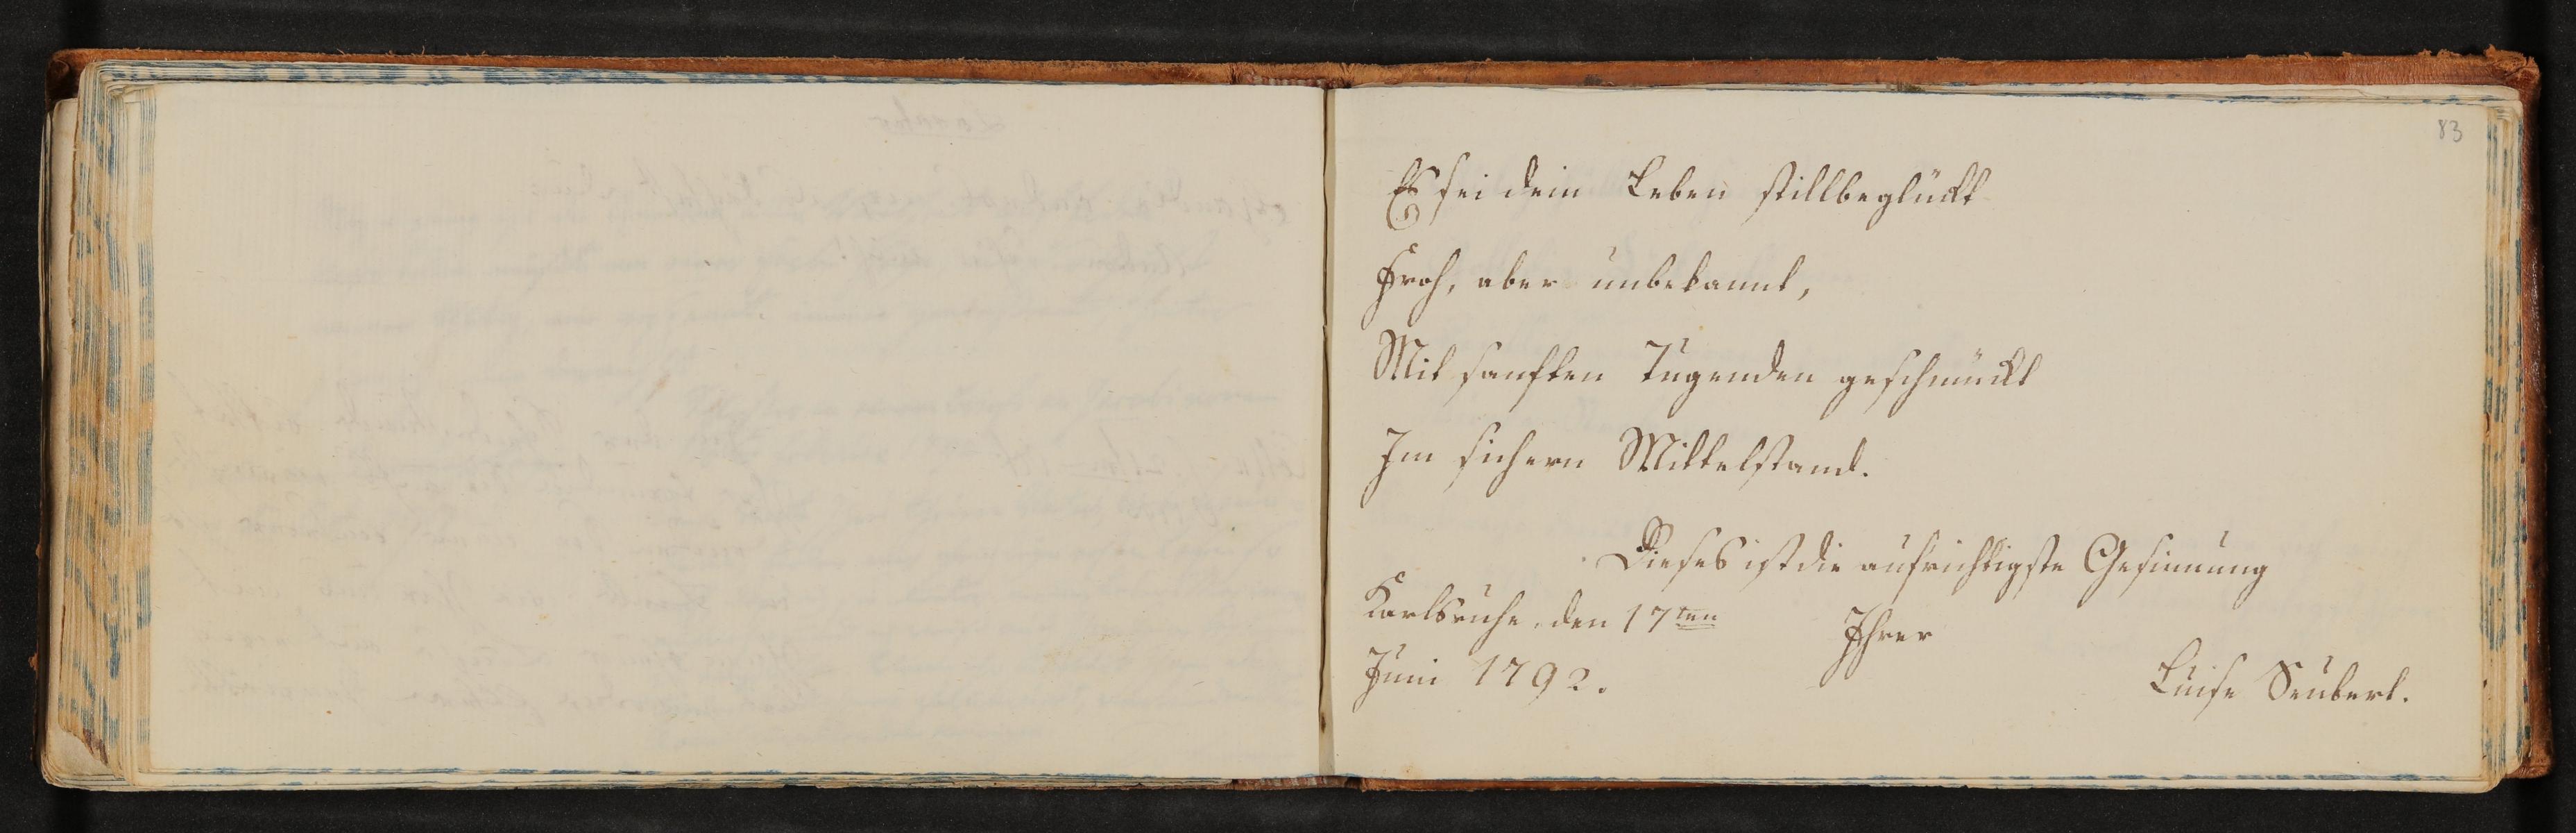 83
Es sei dein Leben stillbeglückt
Froh, aber unbekannt,
Mit sanften Tugenden geschmückt
Im sichern Mittelstand.
Dieses ist die aufrichtigste Gesinnung
Karlsruhe, den 17ten
Ihrer
Juni 1792.
Luise Seubert.